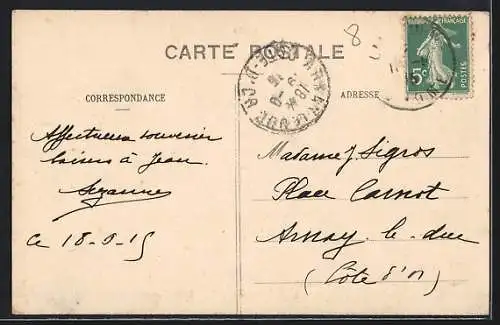 8
CARTE POSTALE
CORRESPONDANCE
ADRESSE
FRANÇAISE
5c
POSTES
Affectueux souvenir
baisers à Jean.
Suzanne
Ce 18-9-15
Madame J. Sigros
Place Carnot
Arnay-le-duc
(Côte d'Or)